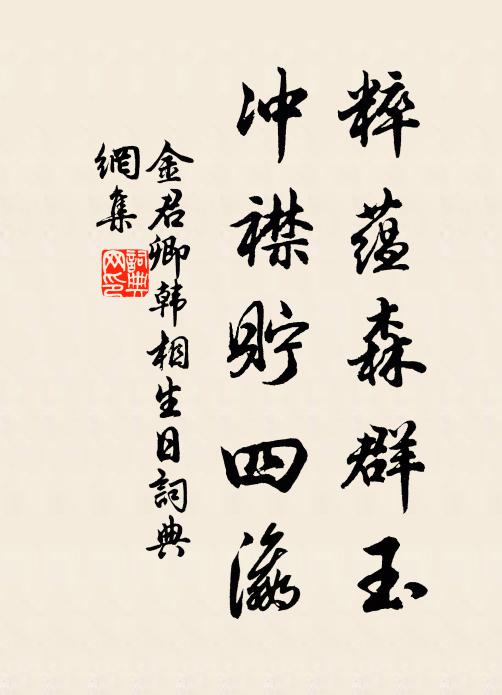 粹蕴森群玉
冲襟贮四瀛
金君卿韩相生日詞典
網集
詞典
网印